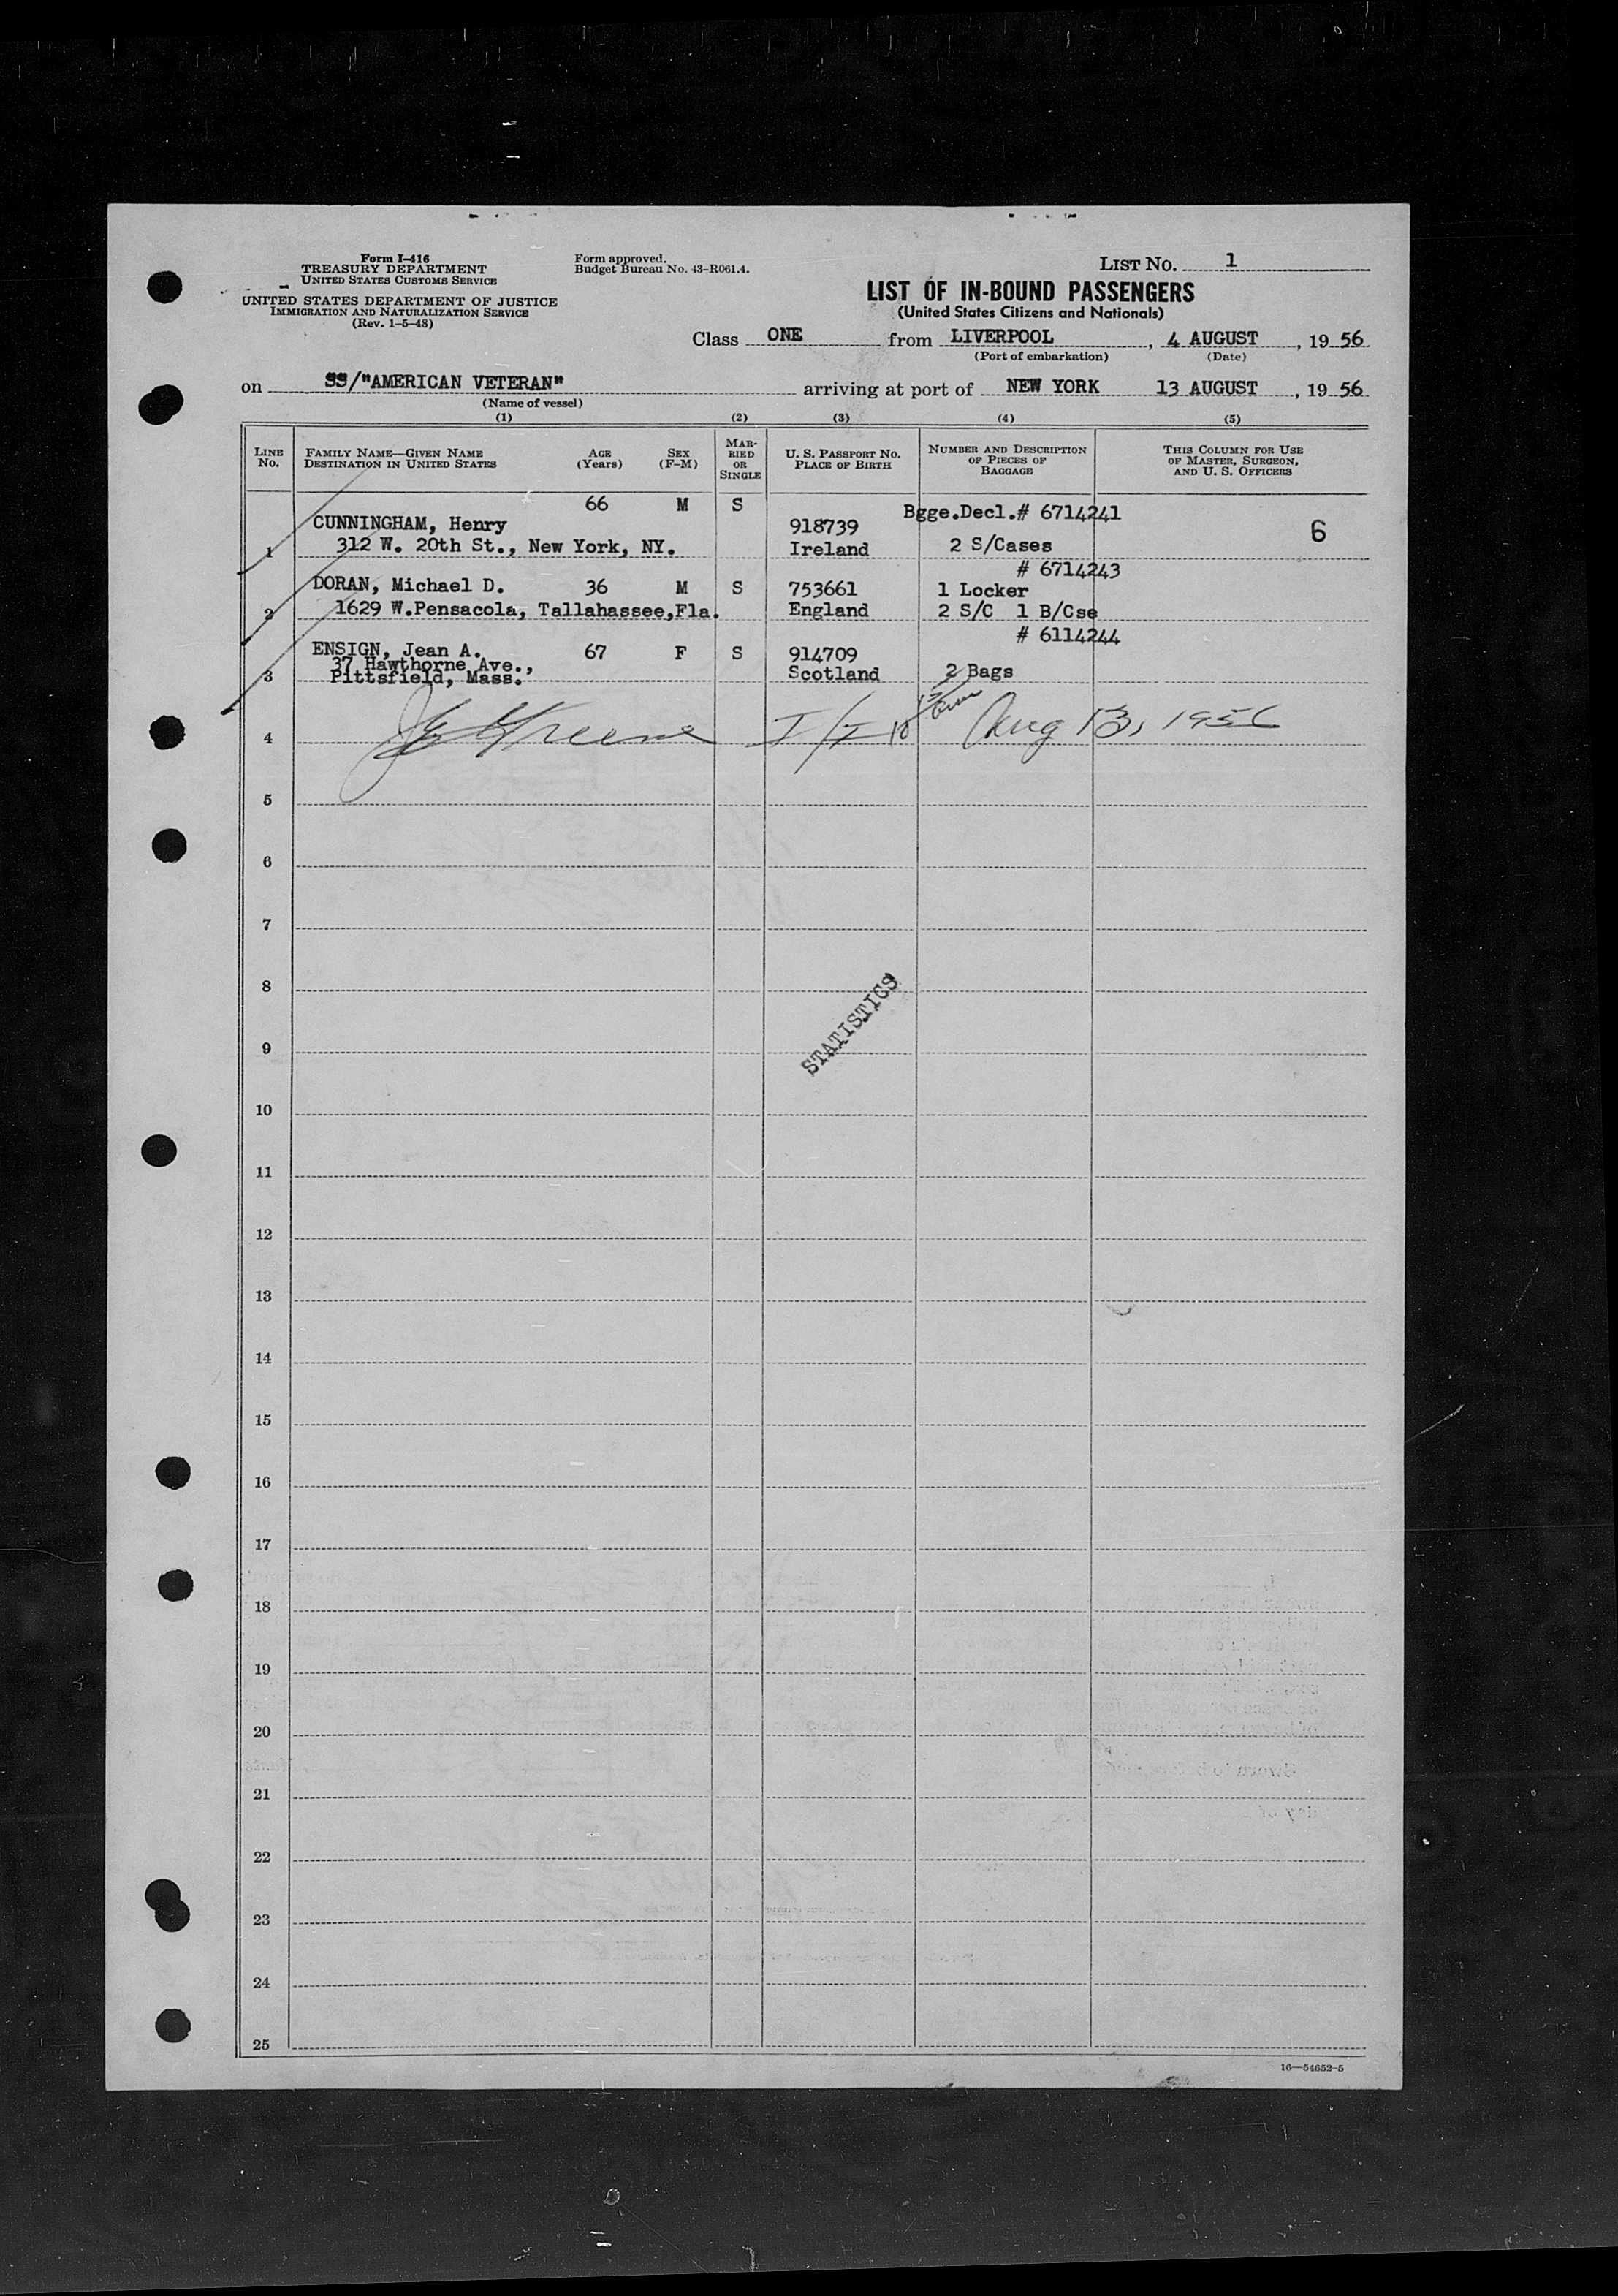 Form I-416
TREASURY DEPARTMENT
UNITED STATES CUSTOMS SERVICE
UNITED STATES DEPARTMENT OF JUSTICE
IMMIGRATION AND NATURALIZATION SERVICE
(Rev. 1-5-48)
Form approved.
Budget Bureau No. 43-R061.4.
LIST NO. 1
LIST OF IN-BOUND PASSENGERS
(United States Citizens and Nationals)
Class ONE from LIVERPOOL, 4 AUGUST, 19 56
(Port of embarkation) (Date)
on SS/"AMERICAN VETERAN" arriving at port of NEW YORK 13 AUGUST, 19 56
(Name of vessel)
(1) (2) (3) (4) (5)
LINE No. FAMILY NAME—GIVEN NAME DESTINATION IN UNITED STATES AGE (Years) SEX (F-M) MARRIED OR SINGLE U. S. PASSPORT NO. PLACE OF BIRTH NUMBER AND DESCRIPTION OF PIECES OF BAGGAGE THIS COLUMN FOR USE OF MASTER, SURGEON, AND U. S. OFFICERS
66 M S Bgge.Decl.# 6714241
CUNNINGHAM, Henry 918739 6
1 312 W. 20th St., New York, NY. Ireland 2 S/Cases
# 6714243
DORAN, Michael D. 36 M S 753661 1 Locker
2 1629 W.Pensacola, Tallahassee,Fla. England 2 S/C 1 B/Cse
# 6114244
ENSIGN, Jean A. 67 F S 914709
37 Hawthorne Ave.,
3 Pittsfield, Mass. Scotland 2 Bags
4 Greene I/I Aug 13, 1956
5
6
7
8
STATISTICS
9
10
11
12
13
14
15
16
17
18
19
20
21
22
23
24
25
16—54652-5